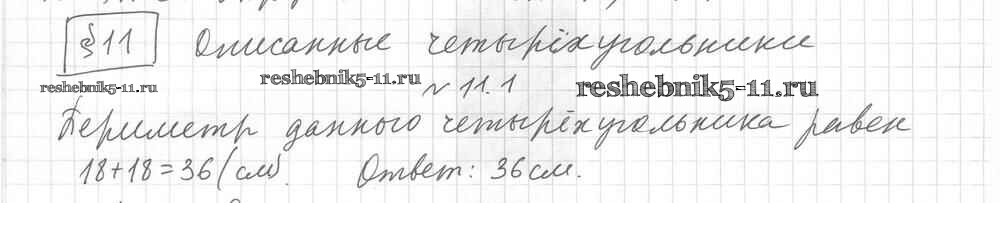 §11 Описанные четырёхугольники
reshebnik5-11.ru reshebnik5-11.ru reshebnik5-11.ru
№ 11.1
Периметр данного четырёхугольника равен
18+18=36 (см). Ответ: 36 см.